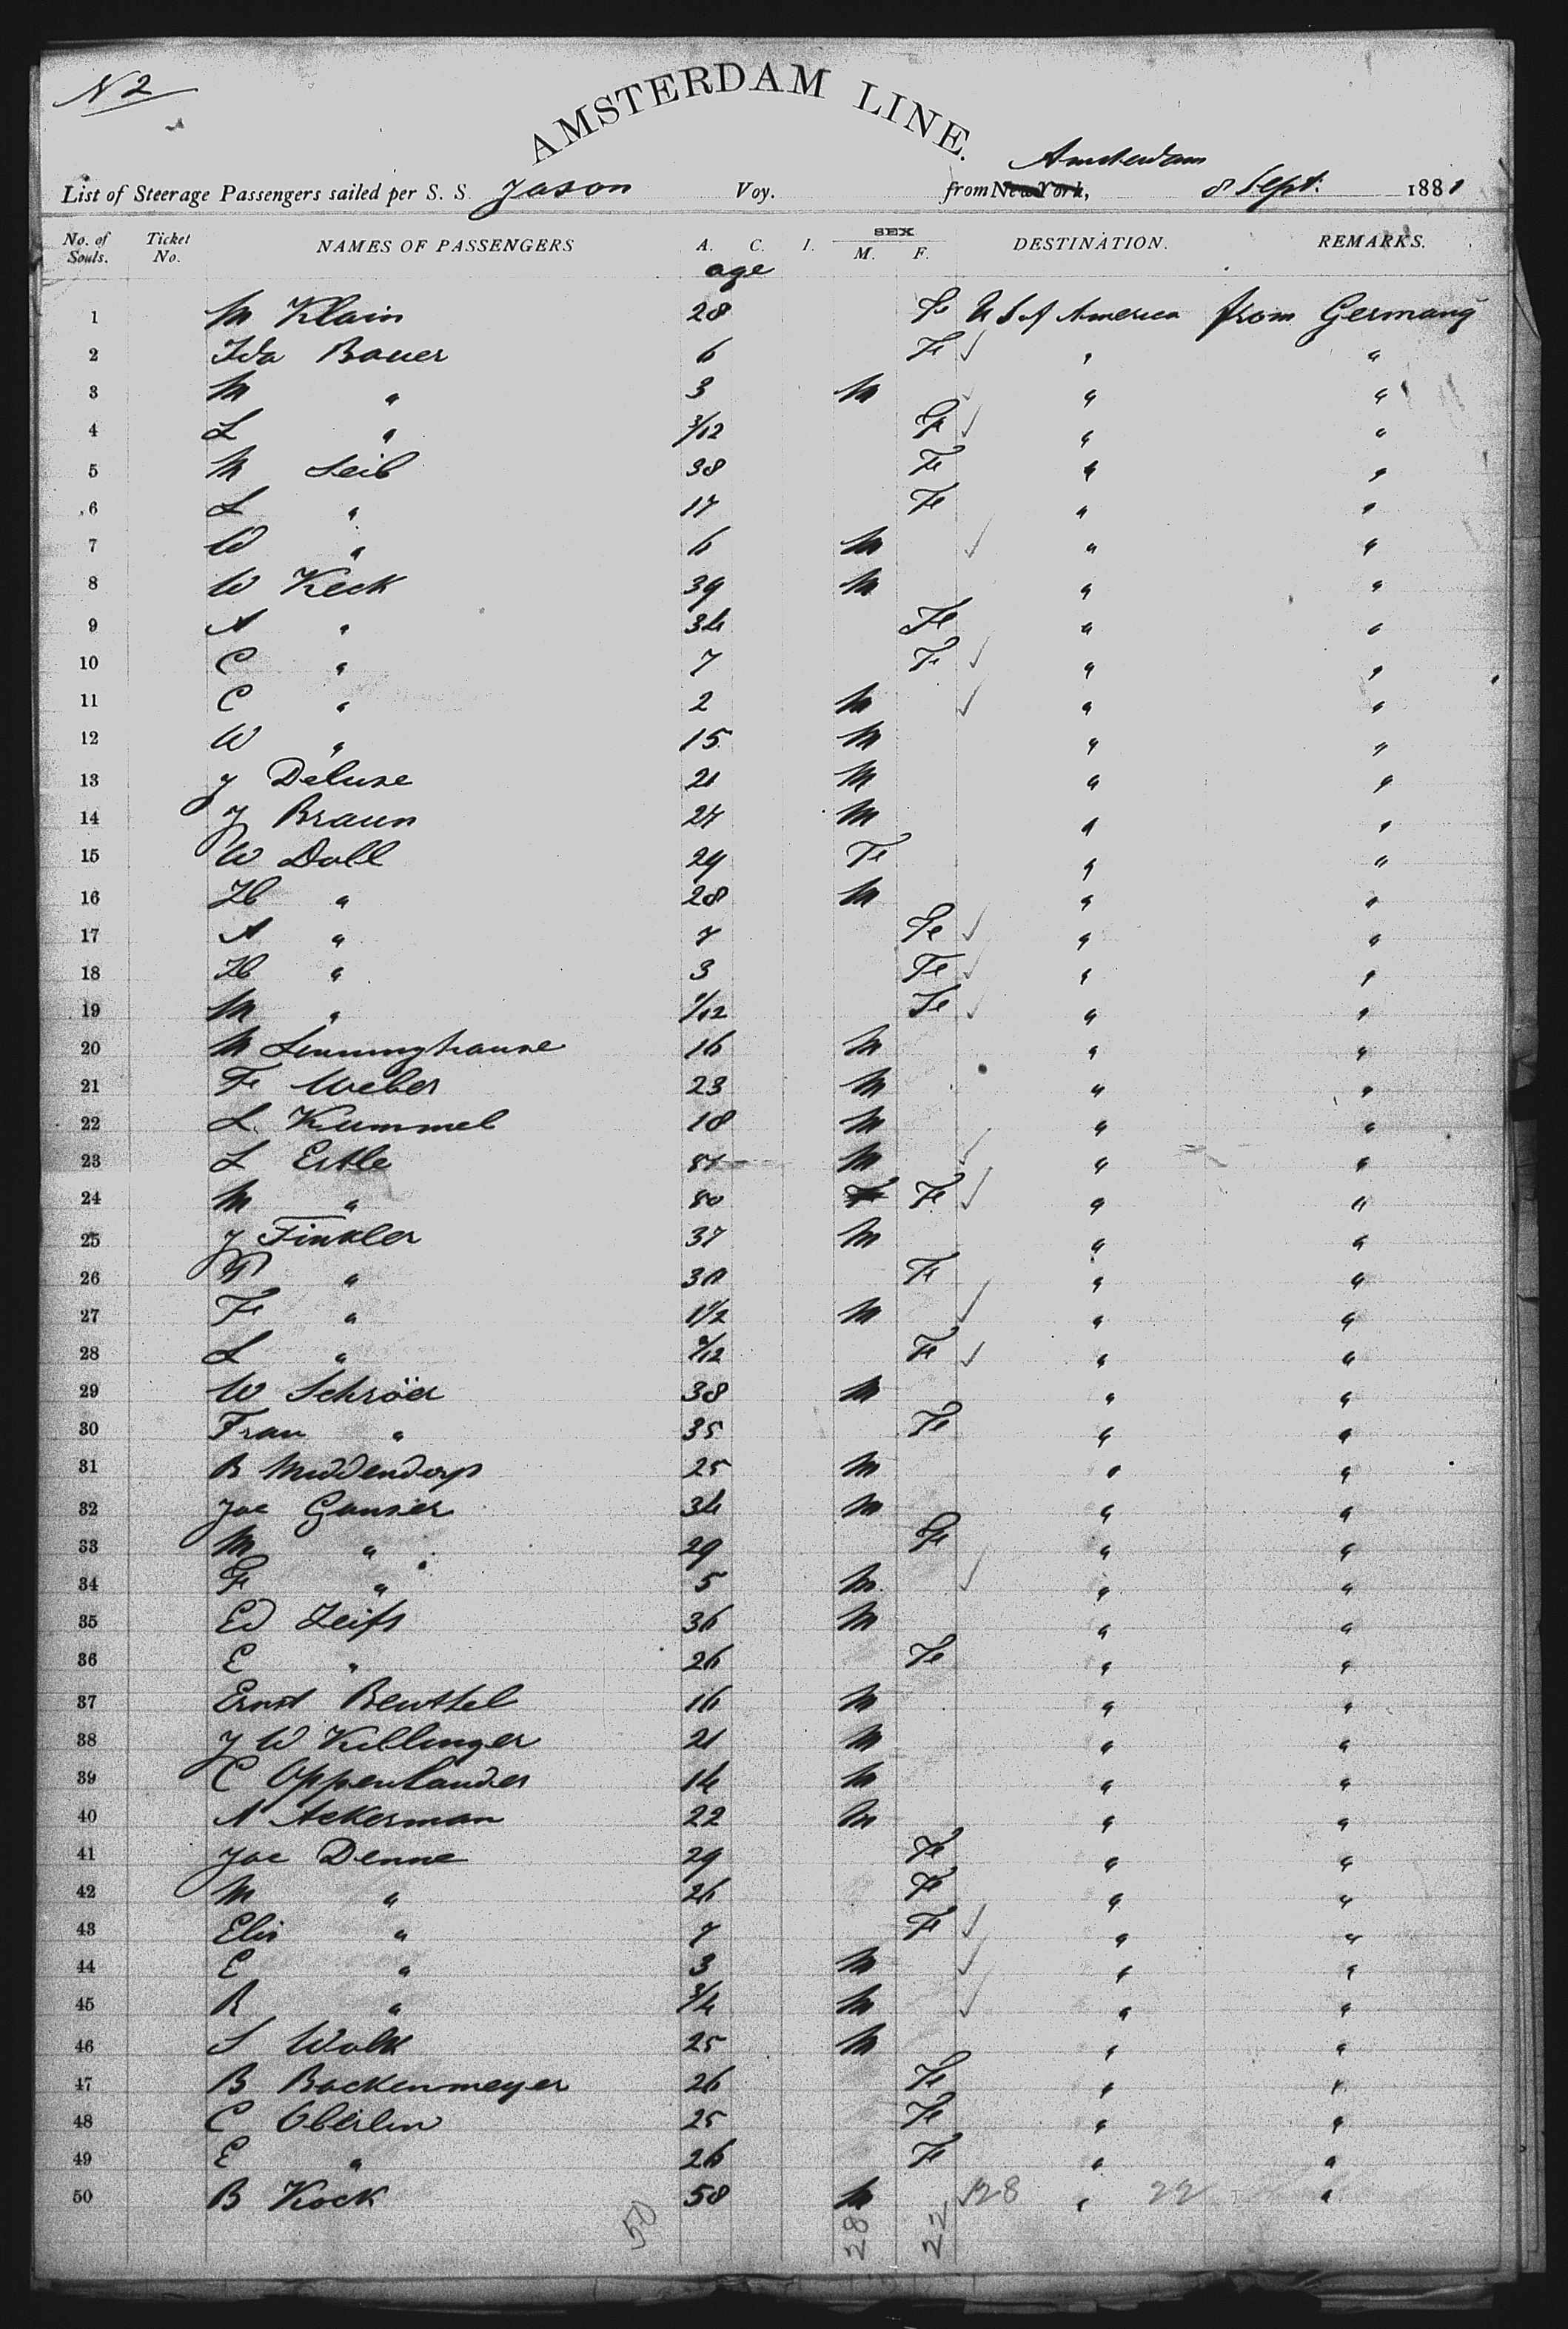 N 2
AMSTERDAM LINE.
Amsterdam
List of Steerage Passengers sailed per S. S. Jason Voy. from New York, 8 Sept. 1881
No. of Souls. Ticket No. NAMES OF PASSENGERS A. C. I. SEX M. F. DESTINATION. REMARKS.
age
1 M Klain 28 Fe U S of America from Germany
2 Ida Bauer 6 Fe " "
3 M " 3 M " "
4 L " 3/12 Fe " "
5 M Leib 38 Fe " "
6 L " 17 Fe " "
7 W " 6 M " "
8 W Keck 39 M " "
9 A " 34 Fe " "
10 C " 7 Fe " "
11 C " 2 M " "
12 W " 15 M " "
13 J Deluse 21 M " "
14 J Braun 24 M " "
15 W Doll 29 Fe " "
16 H " 28 M " "
17 A " 7 Fe " "
18 H " 3 Fe " "
19 M " /12 Fe " "
20 M Lenninghause 16 M " "
21 Fr Weber 23 M " "
22 L. Kummel 18 M " "
23 L Ertle M " "
24 M " 80 Fe " "
25 J Finkler 37 M " "
26 " 30 Fe " "
27 Fr " 1 1/2 M " "
28 L " /12 Fe " "
29 W Schröer 38 M " "
30 Frau " 35 Fe " "
31 B Middendorp 25 M " "
32 Joe Ganser 34 M " "
33 M " 29 Fe " "
34 Fr " 5 M " "
35 Ed Zeifs 36 M " "
36 E " 26 Fe " "
37 Ernst Beuthel 16 M " "
38 J W Killinger 21 M " "
39 C Oppenlander 14 M " "
40 A Ackerman 22 M " "
41 Joe Denne 29 Fe " "
42 M " 26 Fe " "
43 Elis " 7 Fe " "
44 E " 3 M " "
45 R " 3/4 M " "
46 S Wolk 25 M " "
47 B Backenmeyer 26 Fe " "
48 C Oberlin 25 Fe " "
49 E " 26 Fe " "
50 B Kock 58 M 28 " 22 "
50 28 22